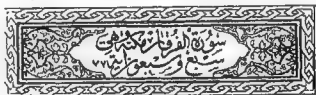 سورة الفرقان مكية وهي
سبع وسبعون اية ٧٧